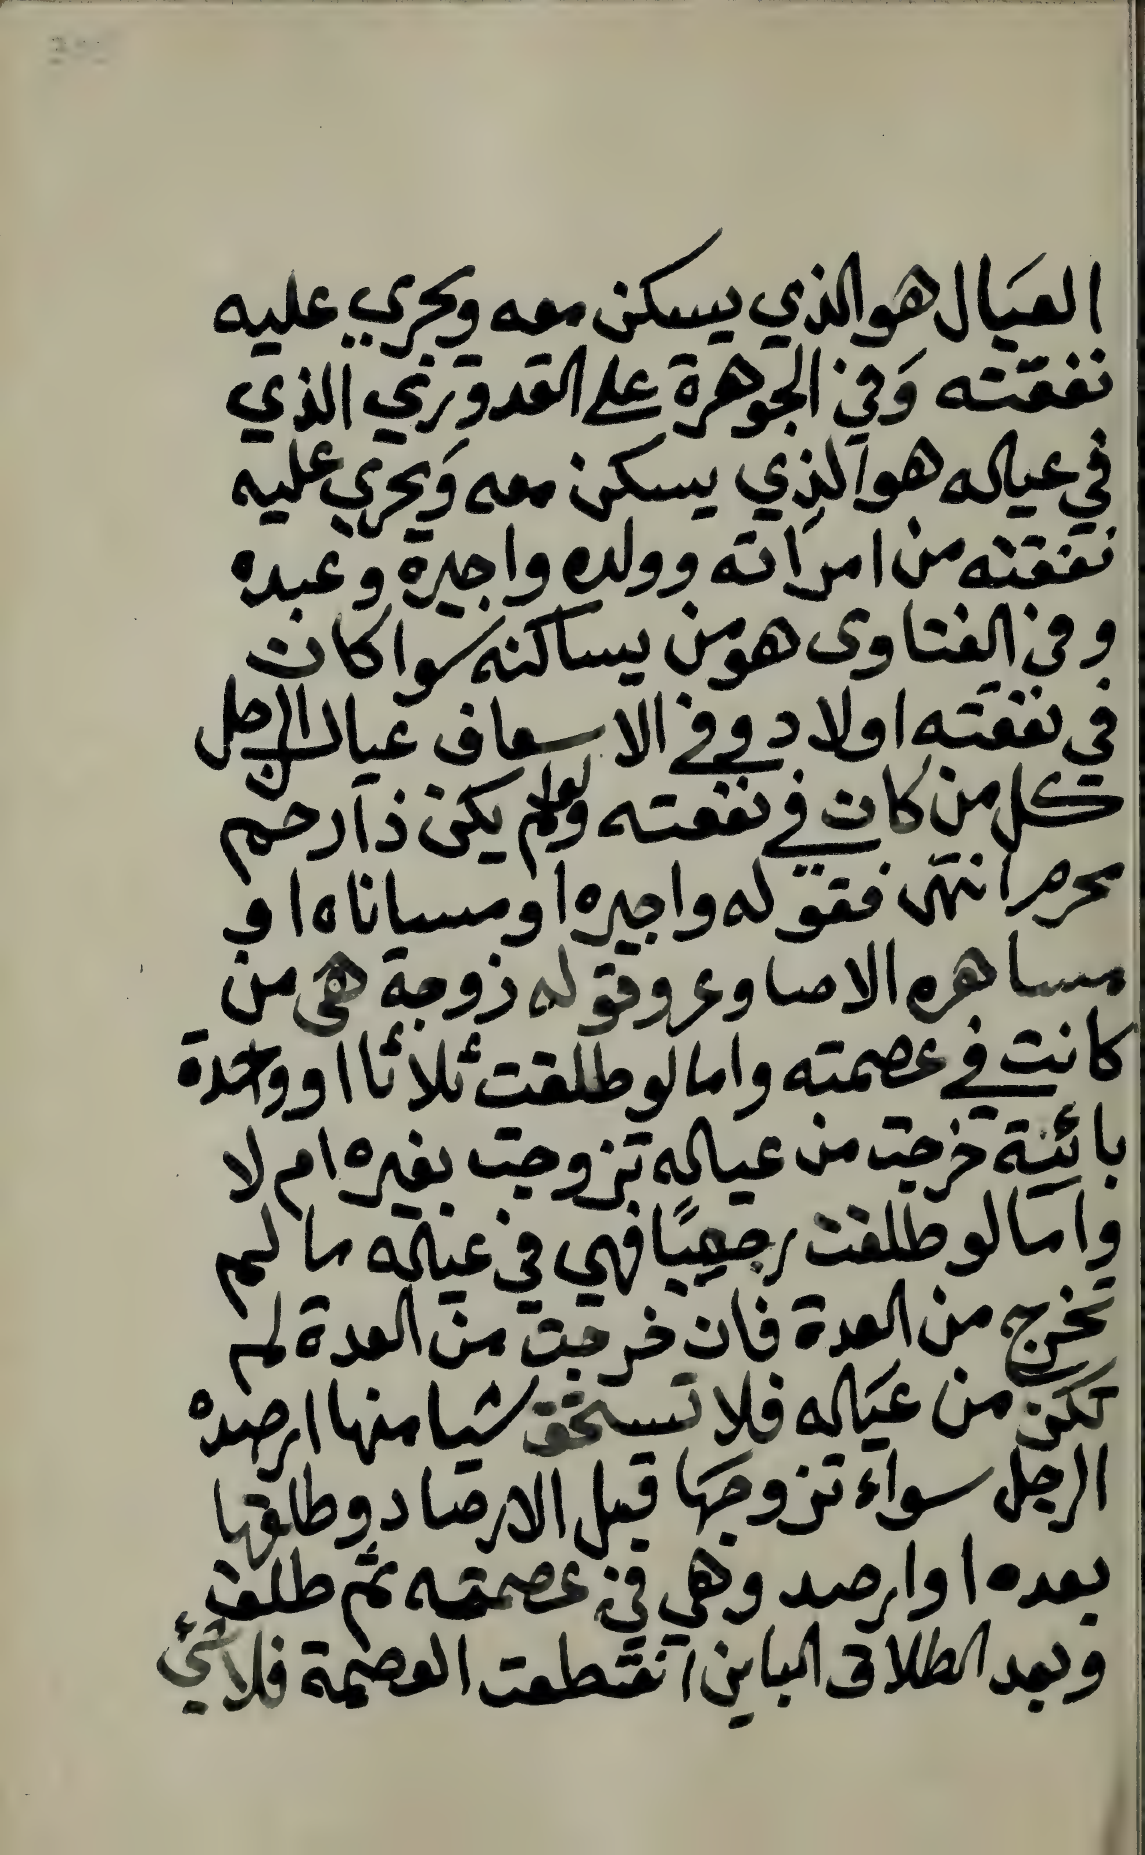 العيال هو الذي يسكن معه ويجري عليه
نفقته وفي الجوهرة على القدوري الذي
في عياله هو الذي يسكن معه ويجري عليه
نفقته من امراته وولده واجيره وعبده
وفي الفتاوى هو من يساكنه سوا كان
في نفقته اولا وفي الاسعاف عيال الرجل
كل من كان في نفقته ولو لم يكن ذا رحم
محرم انتهى فقوله واجيره او مساناه او
مساهره الاصاوع وقوله زوجة هي من
كانت في عصمته واما لو طلقت ثلاثا او واحدة
بائنة خرجت من عياله تزوجت بغيره ام لا
واما لو طلقت رجعيا فهي في عياله ما لم
تخرج من العدة فان خرجت من العدة لم
تكن من عياله فلا تستحق شيا منها ارصده
الرجل سواء تزوجها قبل الارصاد وطلقها
بعده او ارصد وهي في عصمته ثم طلقت
وبعد الطلاق الباين انقطعت العصمة فلا شئ